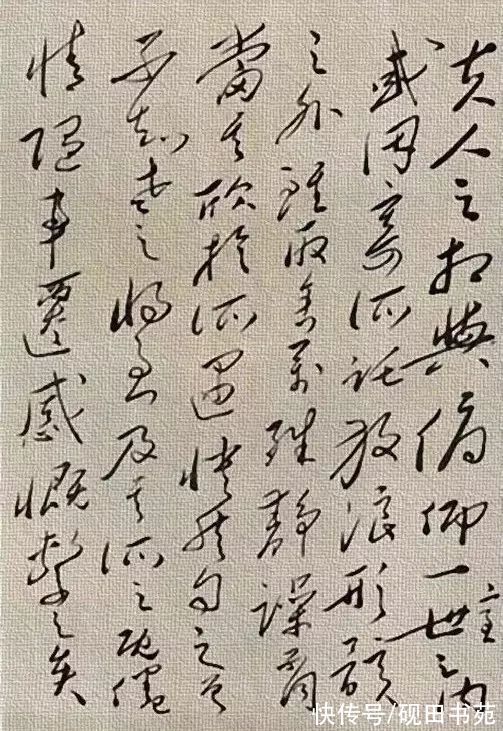 夫人之相與俯仰一世之內
室
或因寄所託放浪形骸
之外雖取舍萬殊靜躁
當其欣於所遇快然自足
不知老之將至及其所之既倦
情隨事遷感慨繫之矣
快传号/砚田书苑